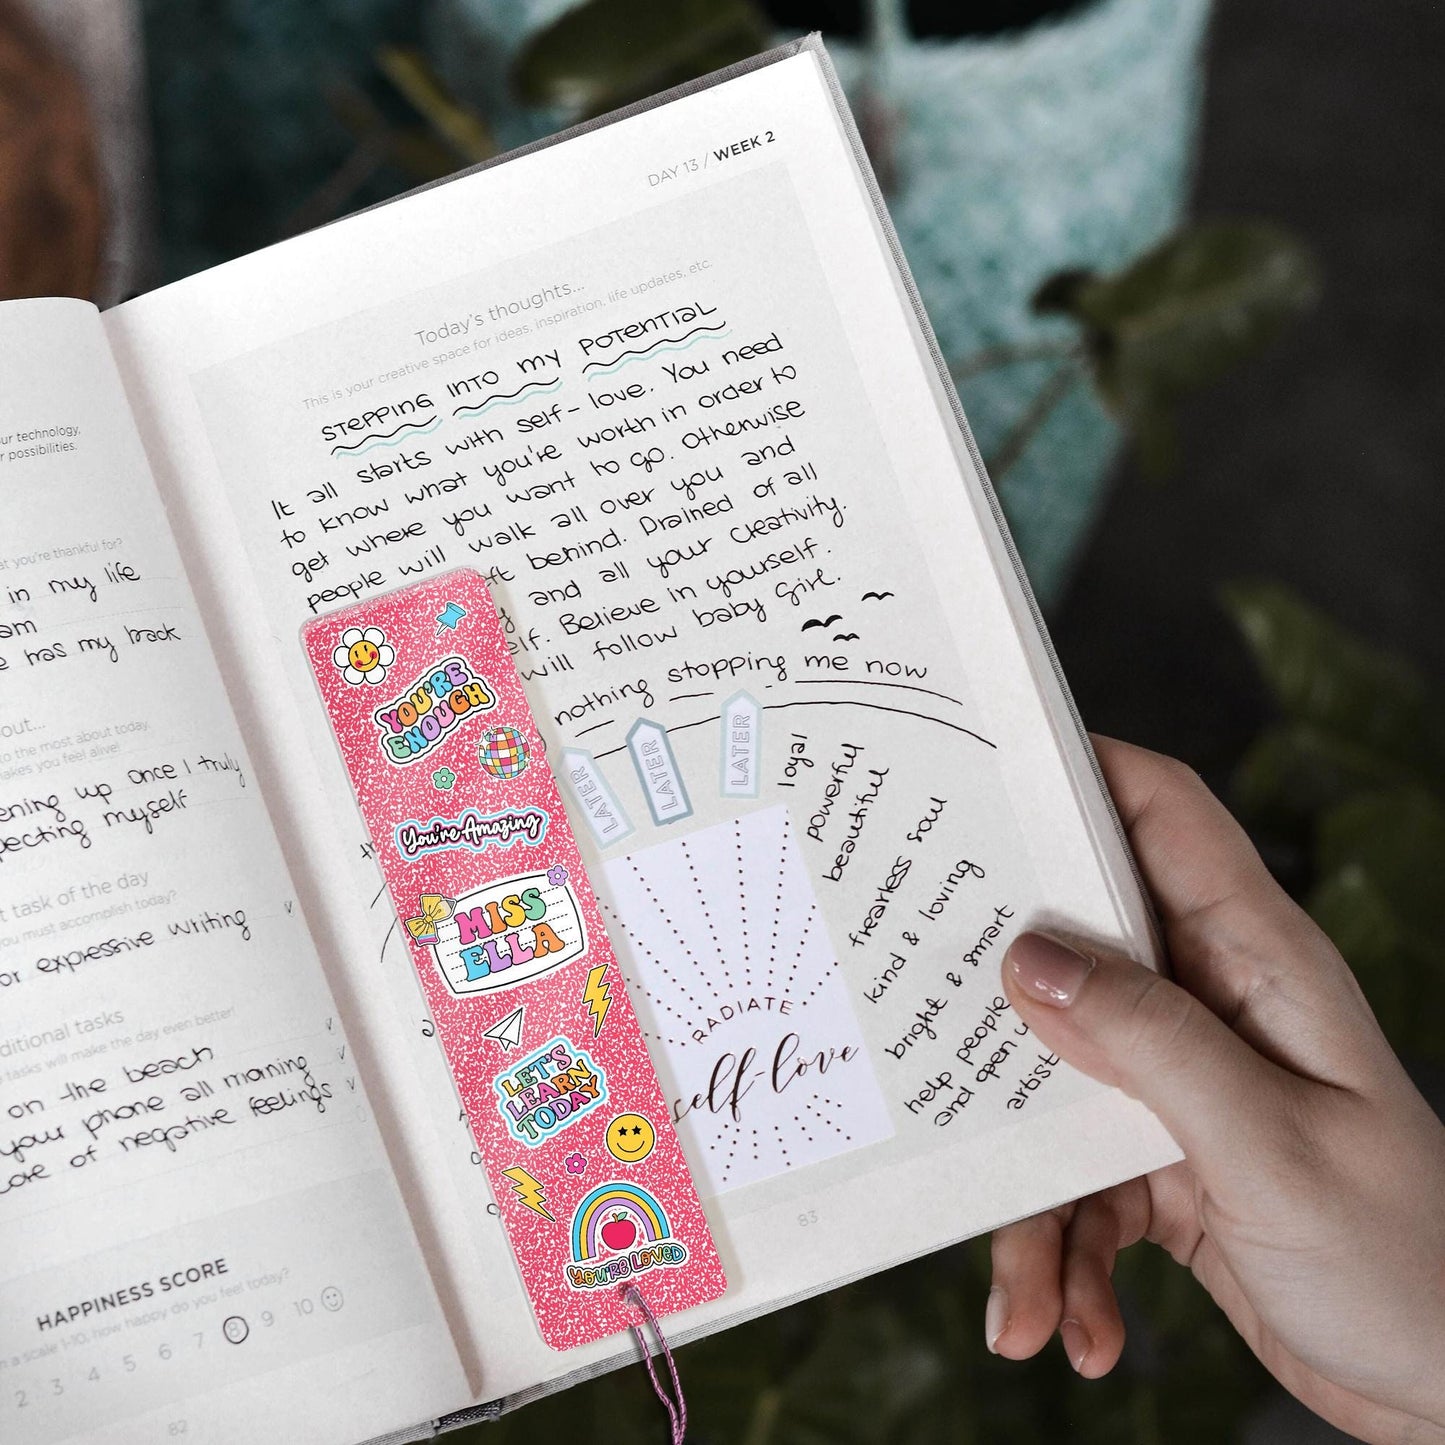 ur technology,
r possibilities.
at you're thankful for?
in my life
am
e has my back
out...
to the most about today.
makes you feel alive!
ening up once I truly
pecting myself
t task of the day
you must accomplish today?
or expressive writing
ditional tasks
tasks will make the day even better!
on the beach
your phone all morning
ore of negative feelings
HAPPINESS SCORE
n a scale 1-10, how happy do you feel today?
2 3 4 5 6 7 8 9 10
82
DAY 13 / WEEK 2
Today's thoughts...
This is your creative space for ideas, inspiration, life updates, etc.
STEPPING INTO MY POTENTIAL
It all starts with self-love. You need
to know what you're worth in order to
get where you want to go. Otherwise
people will walk all over you and
ft behind. Drained of all
y and all your creativity.
elf. Believe in yourself.
will follow baby girl.
nothing stopping me now
LATER
LATER
LATER
loyal
powerful
beautiful
fearless soul
kind & loving
bright & smart
help people
and open u
artist
RADIATE
self-love
83
YOU'RE
ENOUGH
You're Amazing
MISS
ELLA
LET'S
LEARN
TODAY
YOU'RE LOVED